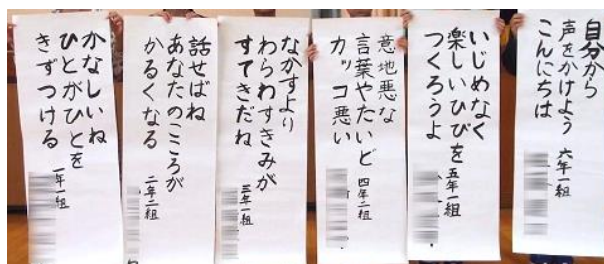 自分から
声をかけよう
こんにちは
六年一組
いじめなく
楽しいひびを
つくろうよ
五年一組
意地悪な
言葉やたいど
カッコ悪い
四年二組
なかすより
わらわすきみが
すてきだね
三年一組
話せばね
あなたのこころが
かるくなる
二年二組
かなしいね
ひとがひとを
きずつける
一年一組